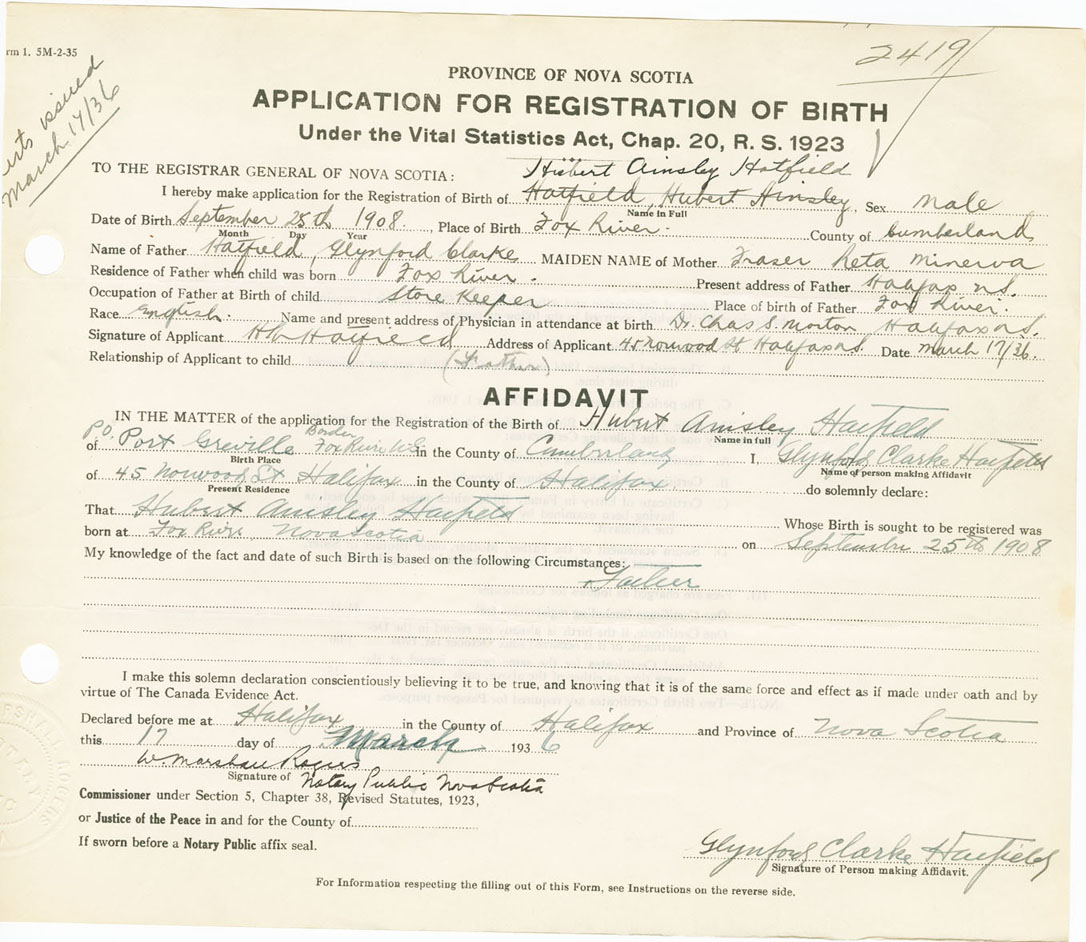 rm 1. 5M-2-35
2419
erts issued
March 17/36
PROVINCE OF NOVA SCOTIA
APPLICATION FOR REGISTRATION OF BIRTH
Under the Vital Statistics Act, Chap. 20, R. S. 1923
TO THE REGISTRAR GENERAL OF NOVA SCOTIA: Hubert Ainsly Hatfield
I hereby make application for the Registration of Birth of Hatfield, Hubert Ainsley, Sex Male
Name in Full
Date of Birth September 25th 1908, Place of Birth Fox River. County of Cumberland
Month Day Year
Name of Father Hatfield, Glynford Clarke MAIDEN NAME of Mother Fraser Reta Minerva
Residence of Father when child was born Fox River. Present address of Father Halifax N.S.
Occupation of Father at Birth of child Store Keeper Place of birth of Father Fox River.
Race English. Name and present address of Physician in attendance at birth Dr. Chas S. Morton Halifax N.S.
Signature of Applicant Hatfield Address of Applicant 45 Norwood St Halifax N.S. Date March 17/36.
Relationship of Applicant to child (Father)
AFFIDAVIT
IN THE MATTER of the application for the Registration of the Birth of Hubert Ainsley Hatfield
Name in full
P.O. Border
of Port Greville Fox River in the County of Cumberland I, Glynford Clarke Hatfield
Birth Place Name of person making Affidavit
of 45 Norwood St Halifax in the County of Halifax do solemnly declare:
Present Residence
That Hubert Ainsley Hatfield Whose Birth is sought to be registered was
born at Fox River, Nova Scotia on September 25th 1908
My knowledge of the fact and date of such Birth is based on the following Circumstances:
Father
I make this solemn declaration conscientiously believing it to be true, and knowing that it is of the same force and effect as if made under oath and by
virtue of The Canada Evidence Act.
Declared before me at Halifax in the County of Halifax and Province of Nova Scotia
this 17 day of March 1936
W. Marshall Rogers
Signature of Notary Public Nova Scotia
Commissioner under Section 5, Chapter 38, Revised Statutes, 1923,
or Justice of the Peace in and for the County of
If sworn before a Notary Public affix seal.
Glynford Clarke Hatfield
Signature of Person making Affidavit.
For Information respecting the filling out of this Form, see Instructions on the reverse side.